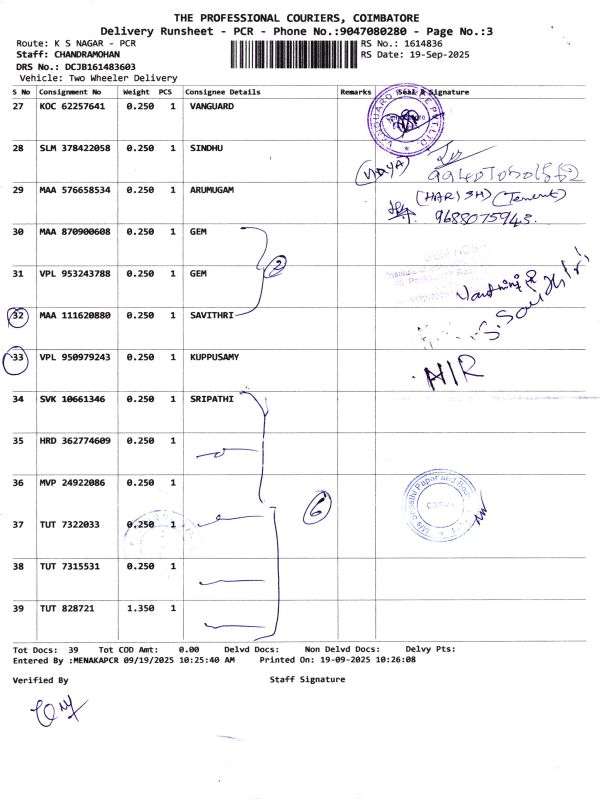 THE PROFESSIONAL COURIERS, COIMBATORE
Delivery Runsheet - PCR - Phone No.:9047080280 - Page No.:3
Route: K S NAGAR - PCR
RS No.: 1614836
Staff: CHANDRAMOHAN
RS Date: 19-Sep-2025
DRS No.: DCJB161483603
Vehicle: Two Wheeler Delivery
S No Consignment No Weight PCS Consignee Details Remarks Seal & Signature
27 KOC 62257641 0.250 1 VANGUARD
28 SLM 378422058 0.250 1 SINDHU
(VIDYA)
29 MAA 576658534 0.250 1 ARUMUGAM
(HARISH) (Tenent)
9688075943.
30 MAA 870900608 0.250 1 GEM
2
31 VPL 953243788 0.250 1 GEM
32 MAA 111620880 0.250 1 SAVITHRI
33 VPL 950979243 0.250 1 KUPPUSAMY
N/R
34 SVK 10661346 0.250 1 SRIPATHI
35 HRD 362774609 0.250 1
36 MVP 24922086 0.250 1
6
37 TUT 7322033 0.250 1
38 TUT 7315531 0.250 1
39 TUT 828721 1.350 1
Tot Docs: 39 Tot COD Amt: 0.00 Delvd Docs: Non Delvd Docs: Delvy Pts:
Entered By :MENAKAPCR 09/19/2025 10:25:40 AM Printed On: 19-09-2025 10:26:08
Verified By Staff Signature